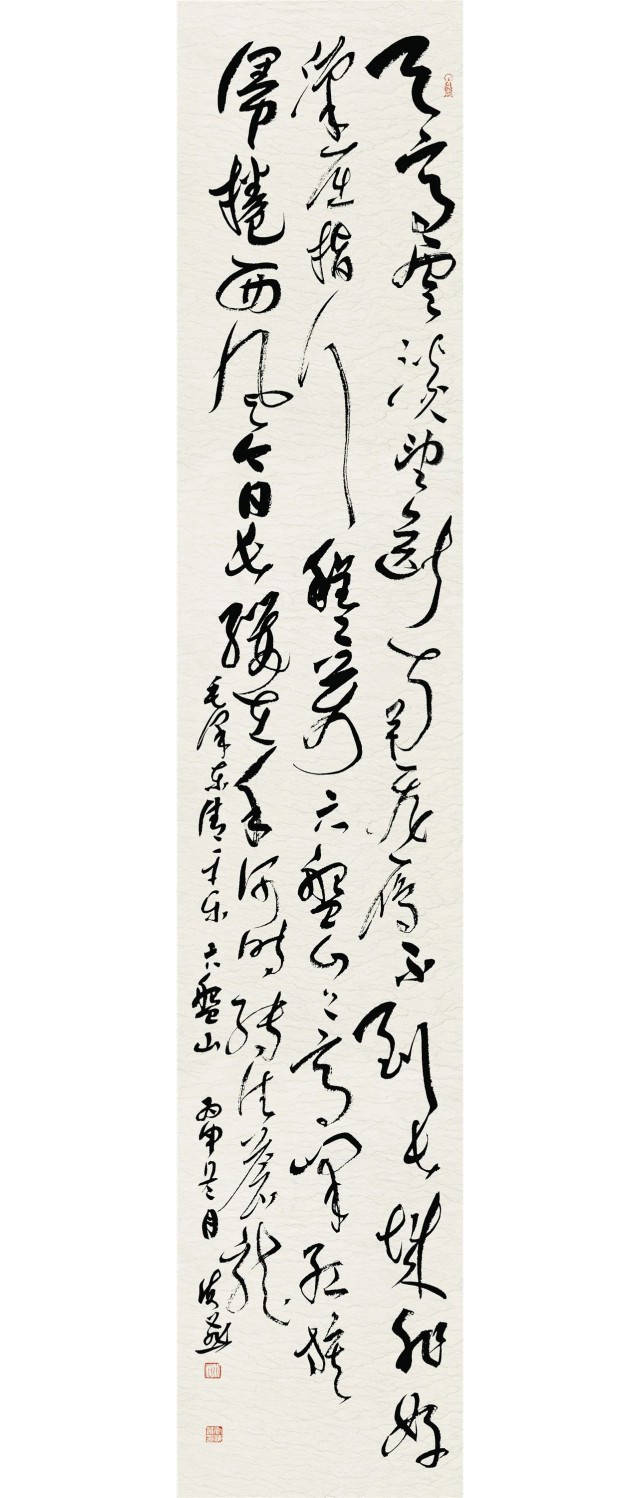 天高雲淡望斷南飛雁不到長城非好
漢屈指行程二萬六盤山上高峰紅旗
漫捲西風今日長纓在手何時縛住蒼龍
毛澤東清平乐六盤山 丙申月